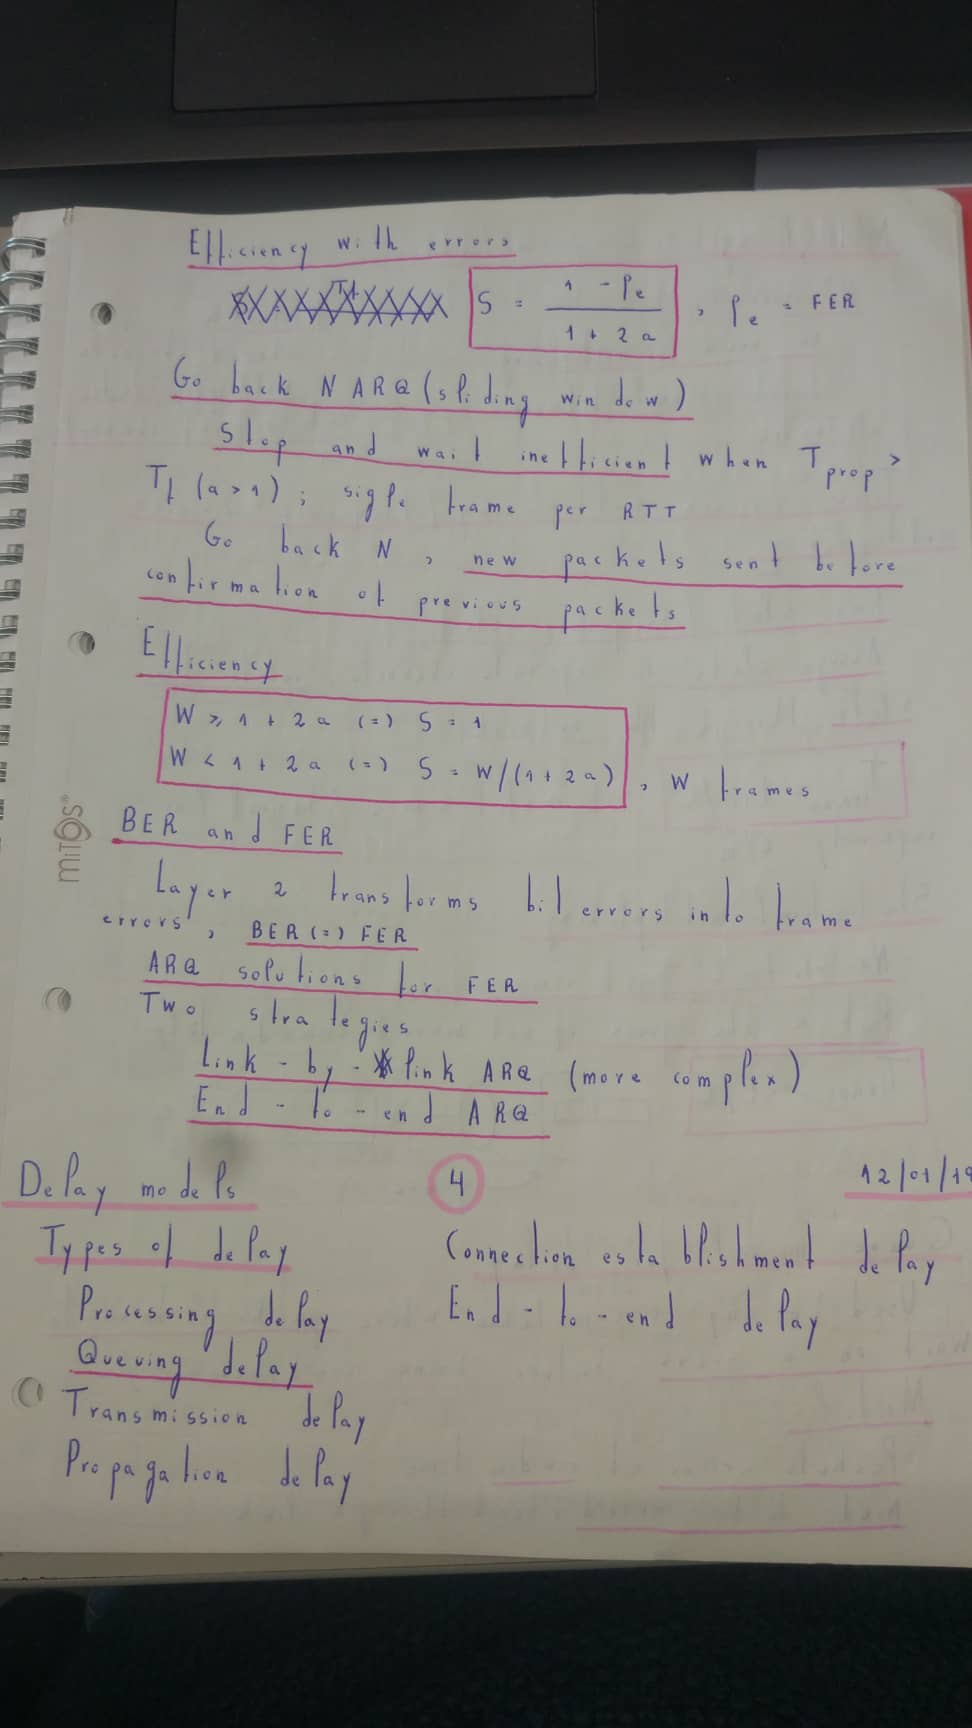 Efficiency with errors
S = (1 - Pe) / (1 + 2a) , Pe = FER
Go back N ARQ (sliding window)
Stop and wait inefficient when Tprop >
Tf (a > 1) ; sigle frame per RTT
Go back N , new packets sent before
confirmation of previous packets
Efficiency
W ⩾ 1 + 2a (=) S = 1
W < 1 + 2a (=) S = W/(1 + 2a) , W frames
BER and FER
Layer 2 transforms bit errors into frame
errors , BER (=) FER
ARQ solutions for FER
Two strategies
Link - by - link ARQ (more complex)
End - to - end ARQ
mitos®
Delay models 4 12/01/19
Types of delay
Processing delay
Queuing delay
Transmission delay
Propagation delay
Connection establishment delay
End - to - end delay